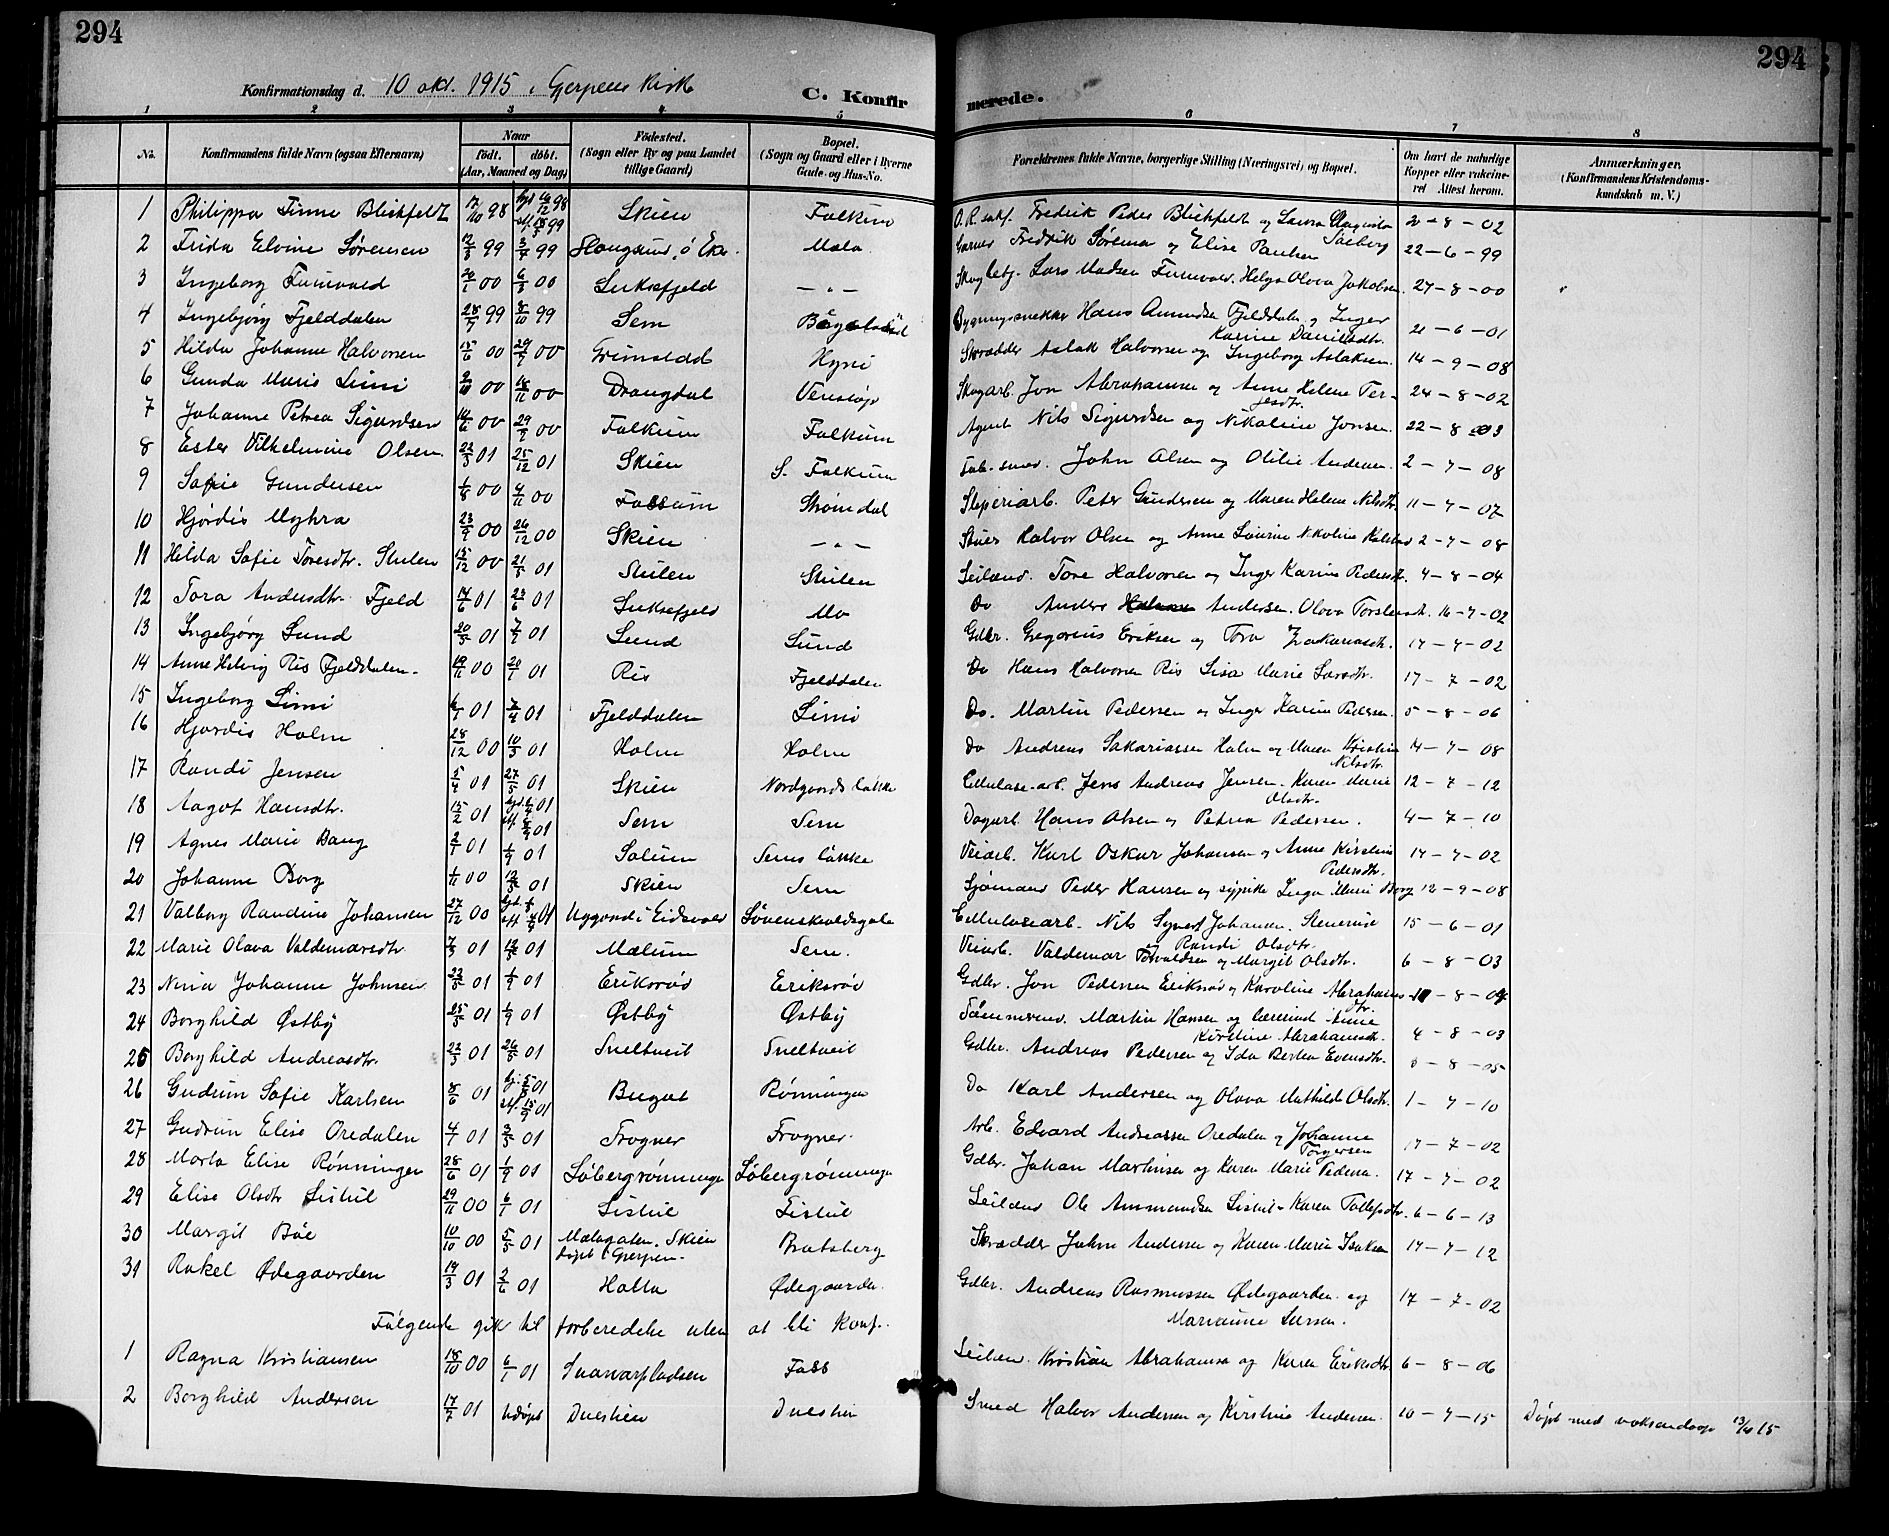 294
294
Konfirmationsdag d. 10 okt. 1915 i Gjerpens kirke
C. Konfirmerede.
1 2 3 4 5 6 7 8
No. Konfirmandens fulde Navn (ogsaa Efternavn) Naar født. døbt. (Aar, Maaned og Dag) Fødested. (Sogn eller By og paa Landet tillige Gaard) Bopæl. (Sogn og Gaard eller i Byerne Gade- og Hus-No. Forældrenes fulde Navne, borgerlige Stilling (Næringsvei) og Bopæl. Om havt de naturlige Kopper eller vakcineret Attest herom. Anmærkninger. (Konfirmandens Kristendomskundskab m. V.)
1 Philippa Finne Blichfeldt 17/10 98 Skien Falkum Fredrik Peder Blichfeldt og Laura Saeberg 2-8-02
2 Frida Elvine Sørensen 12/3 99 3/4 99 Mæla Garver Fredrik Sørensen og Elise Paulsen 22-6-99
3 Ingeborg Furuvald 20/1 00 6/3 00 Luksefjeld — " — Lars Madsen Furuvald. Helga Olava Jakobsen. 27-8-00
4 Ingebjørg Fjelddalen 28/7 99 8/10 99 Sem Bygningssnekker Hans Amundsen Fjelddalen og Inger Karine Danielsdtr. 21-6-01
5 Hilda Johanne Halvorsen 15/6 00 29/7 00 Hyni Skrædder Aslak Halvorsen og Ingeborg Aslaksen. 14-9-08
6 Gunda Marie Limi 2/10 00 18/11 00 Drangdal Venstøp Skogarb. Jon Abrahamsen og Anne Helene Terjesdtr. 24-8-02
7 Johanne Petrea Sigurdsen 14/6 00 29/7 00 Falkum Falkum Agent Nils Sigurdsen og Nikoline Jonsen. 22-8-03
8 Ester Vilhelmine Olsen 22/3 01 25/12 01 Skien S. Falkum Fab.-smed. John Olsen og Otilie Andersen. 2-7-08
9 Sofie Gundersen 1/8 00 4/11 00 Fossum Strømdal Sliperiarb. Peter Gundersen og Maren Helene Nilsdtr. 11-7-07
10 Hjørdis Myhra 23/9 00 26/12 00 Skien — " — Stuer Halvor Olsen og Anne Laurine Nikoline 2-7-08
11 Hilda Sofie Toresdtr. Stulen 15/12 00 21/5 01 Stulen Stulen Leilænd. Tore Halvorsen og Inger Karine Pedersdtr. 4-8-04
12 Tora Andersdtr. Fjeld 14/6 01 23/6 01 Luksefjeld Mo Do Anders Andersen. Olava Torstensdtr. 16-7-02
13 Ingebjørg Lund 20/5 01 7/7 01 Lund Lund Gdbr. Gregorius Eriksen og Tora Zakariasdtr. 17-7-02
14 Anne Helvig Ris Fjelddalen. 19/11 00 20/1 01 Ris Fjelddalen Do Hans Halvorsen Ris Lisa Marie Larsdtr. 17-7-02
15 Ingeborg Limi 01 7/4 01 Fjelddalen Limi Do. Martin Pedersen og Inger Karine Pedersen. 5-8-06
16 Hjordis Holm 28/12 00 10/3 01 Holm Holm Do Andreas Sakariassen Holm og Maren Kristine Nilsdtr. 14-7-08
17 Randi Jensen 5/4 01 27/5 01 Skien Nordgaards løkke Cellulose-arb. Jens Andreas Jensen. Karen Marie Olsdtr. 12-7-12
18 Aagot Hansdtr. 15/2 01 Sem Sem Dagarb. Hans Olsen og Petrea Pedersen. 4-7-10
19 Agnes Marie Bang 2/1 01 1/9 01 Solum Sems løkke Veiarb. Karl Oskar Johansen og Anne Kirstine Pedersdtr. 17-7-02
20 Johanne Borg 1/11 00 01 Skien Sem Sjømand Peder Hansen og sypike Inga Marie Borg 12-9-08
21 Valborg Randine Johansen 27/12 00 i Eidsvold Løvenskioldsgate Cellulosearb. Nils Synert Johansen. Randi Olsdtr. 15-6-01
22 Marie Olava Valdemarsdtr 7/3 01 01 Mælum Sem. Veiarb. Valdemar og Margit Olsdtr. 6-8-03
23 Nina Johanne Johnsen 23/5 01 1/9 01 Eriksrød Eriksrød Gdbr. Jon Pedersen Eriksrød og Karoline Abrahamsdtr. 11-8-04
24 Borghild Østby 25/5 01 1/9 01 Østby Østby Tømmerm. Martin Hansen og Anne Kirstine Abrahamsdtr. 4-8-03
25 Borghild Andreasdtr. 22/3 01 26/5 01 Sneltveit Sneltveit Gdbr. Andreas Pedersen og Ida Bertea Evensdtr. 8-05
26 Gudrun Sofie Karlsen 8/6 01 Rønningen Do Karl Andersen og Olava Mathilde Olsdtr. 1-7-10
27 Gudrun Elise Oredalen 4/1 01 01 Frogner Frogner. Arb. Edvard Andreassen Oredalen og Johanne Torgersen 17-7-02
28 Marta Elise Rønningen 28/6 01 1/9 01 Løbergrønningen Løbergrønningen Gdbr. Johan Martinsen og Karen Marie Pedersen. 17-7-02
29 Elise Olsdtr Listul 29/11 00 6/1 01 Listul Listul Leilænd Ole Ammundsen Listul - Karen Tollefsdtr. 6-6-13
30 Margit Bøe 10/10 00 5/5 01 Mælagaten. Skien døpt i Gjerpen. Bratsberg Skrædder John Andersen og Karen Marie Isaksen 17-7-12
31 Rakel Ødegaarden 19/3 01 2/6 01 Holla Ødegaarden. Gdbr. Andreas Rasmussen Ødegaarden og Marianne Larsen. 17-7-02
Følgende gik til forberedelse uten at bli konf.
1 Ragna Kristiansen 18/10 00 6/1 01 Snavarpladsen Foss Leilæn. Kristian Abrahamsen og Karen Eriksdtr 6-8-06
2 Borghild Anderson 17/7 01 Udøpt Duestien Duestien Smed Halvor Andersen og Kirstine Andersen. 10-7-15 Døpt med voksendaap 13/10 15